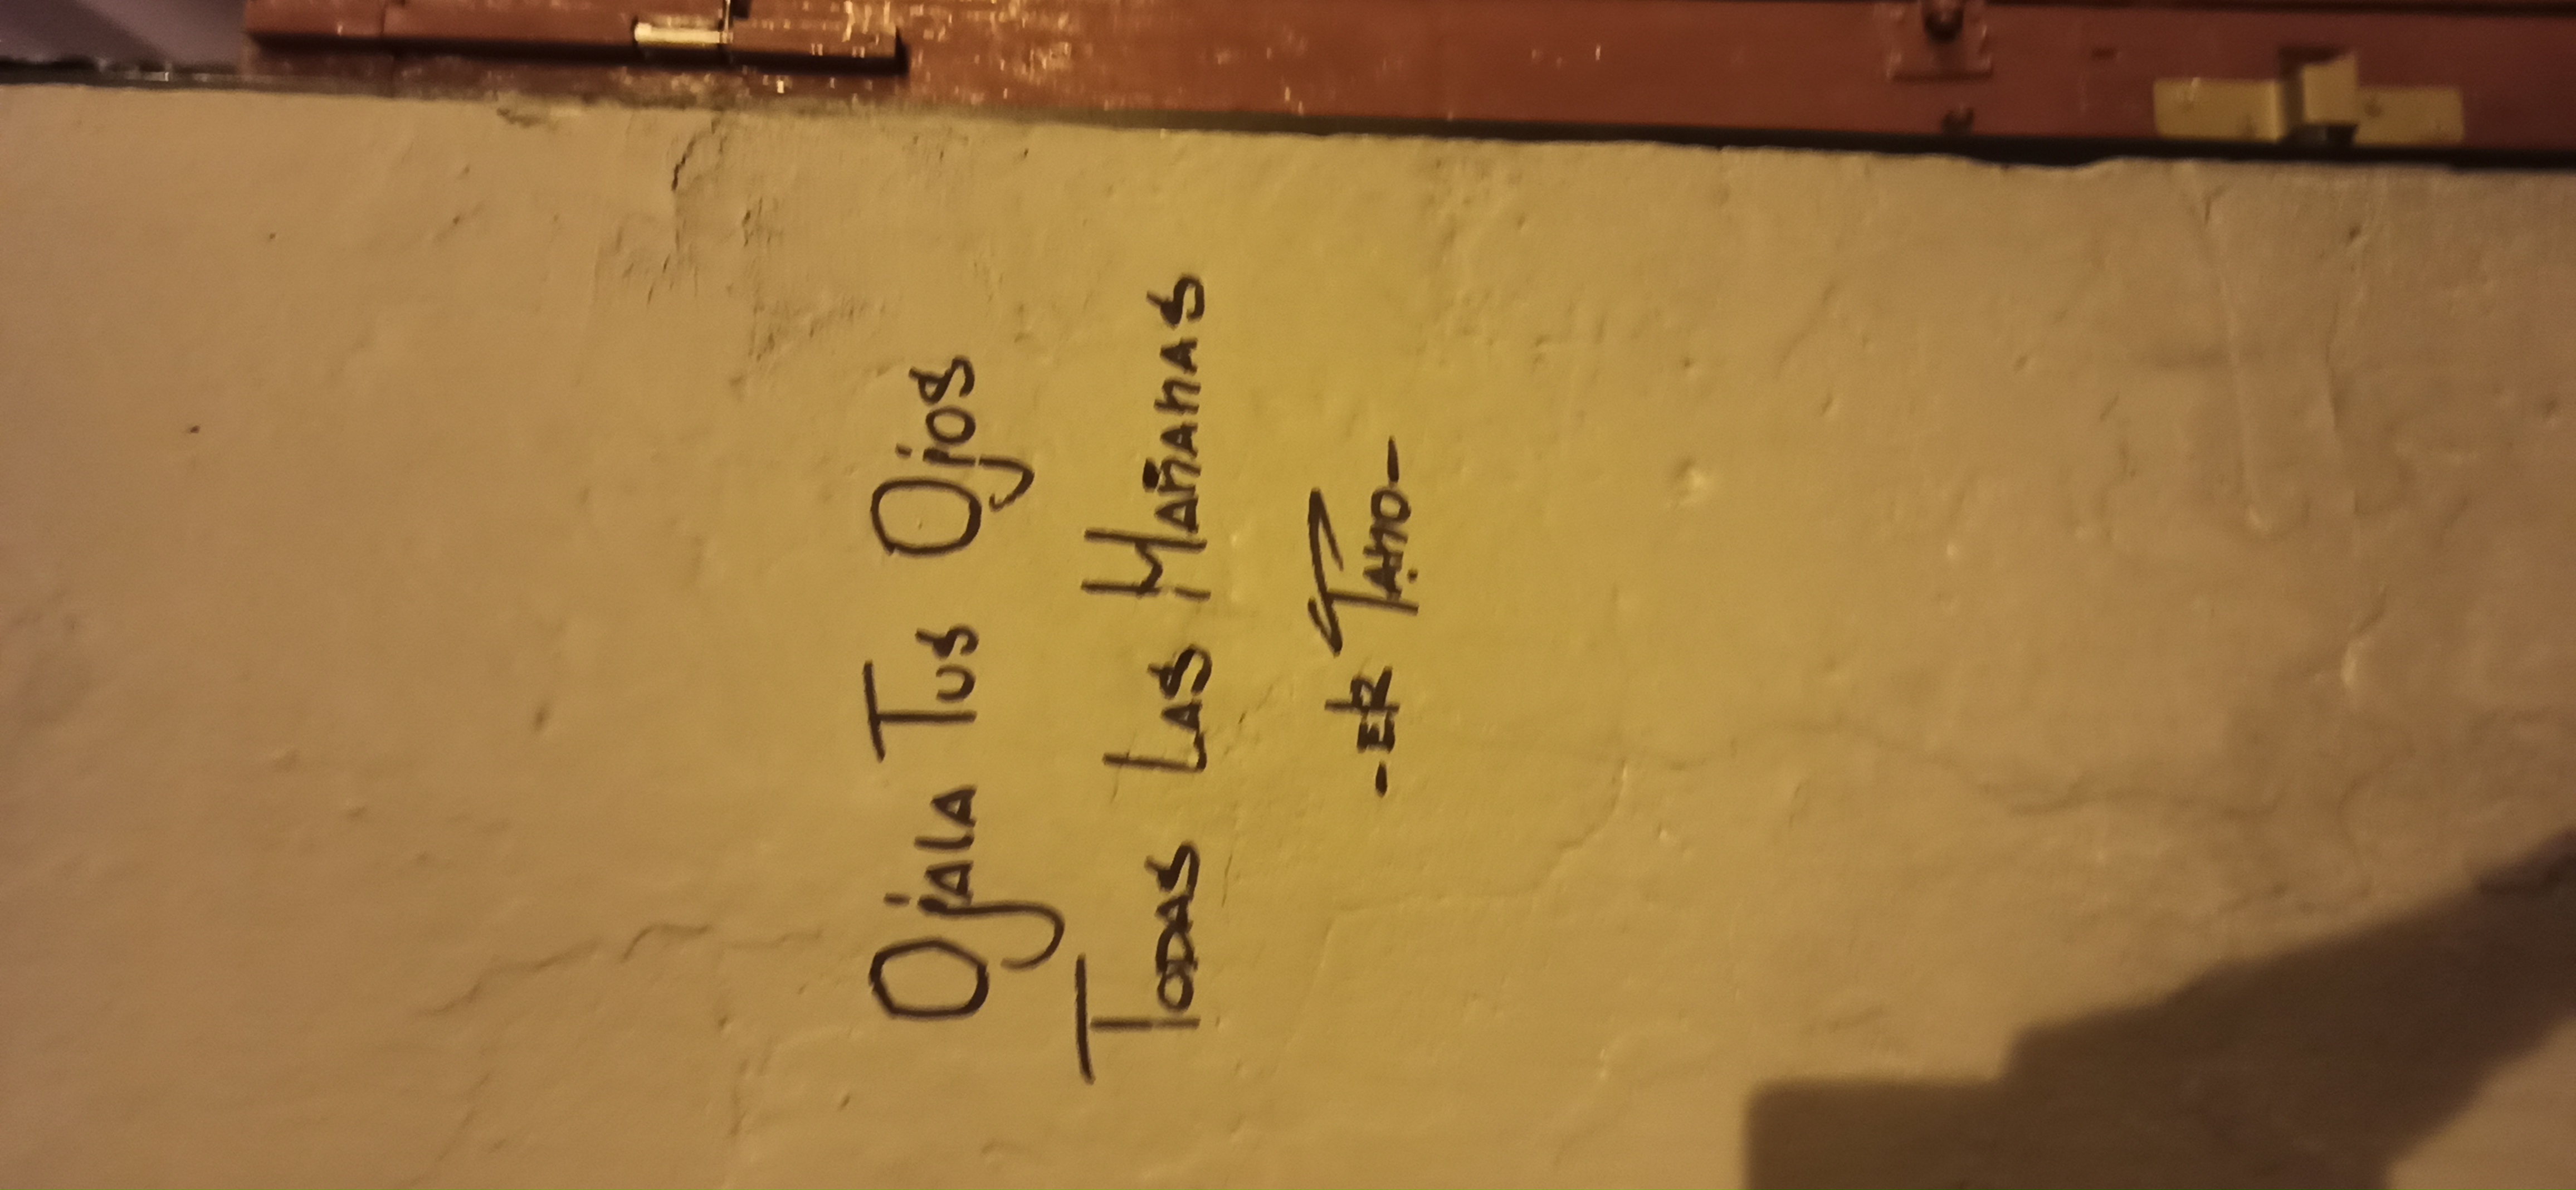 Ojala Tus Ojos
Todas Las Mañanas
-ER Tano-